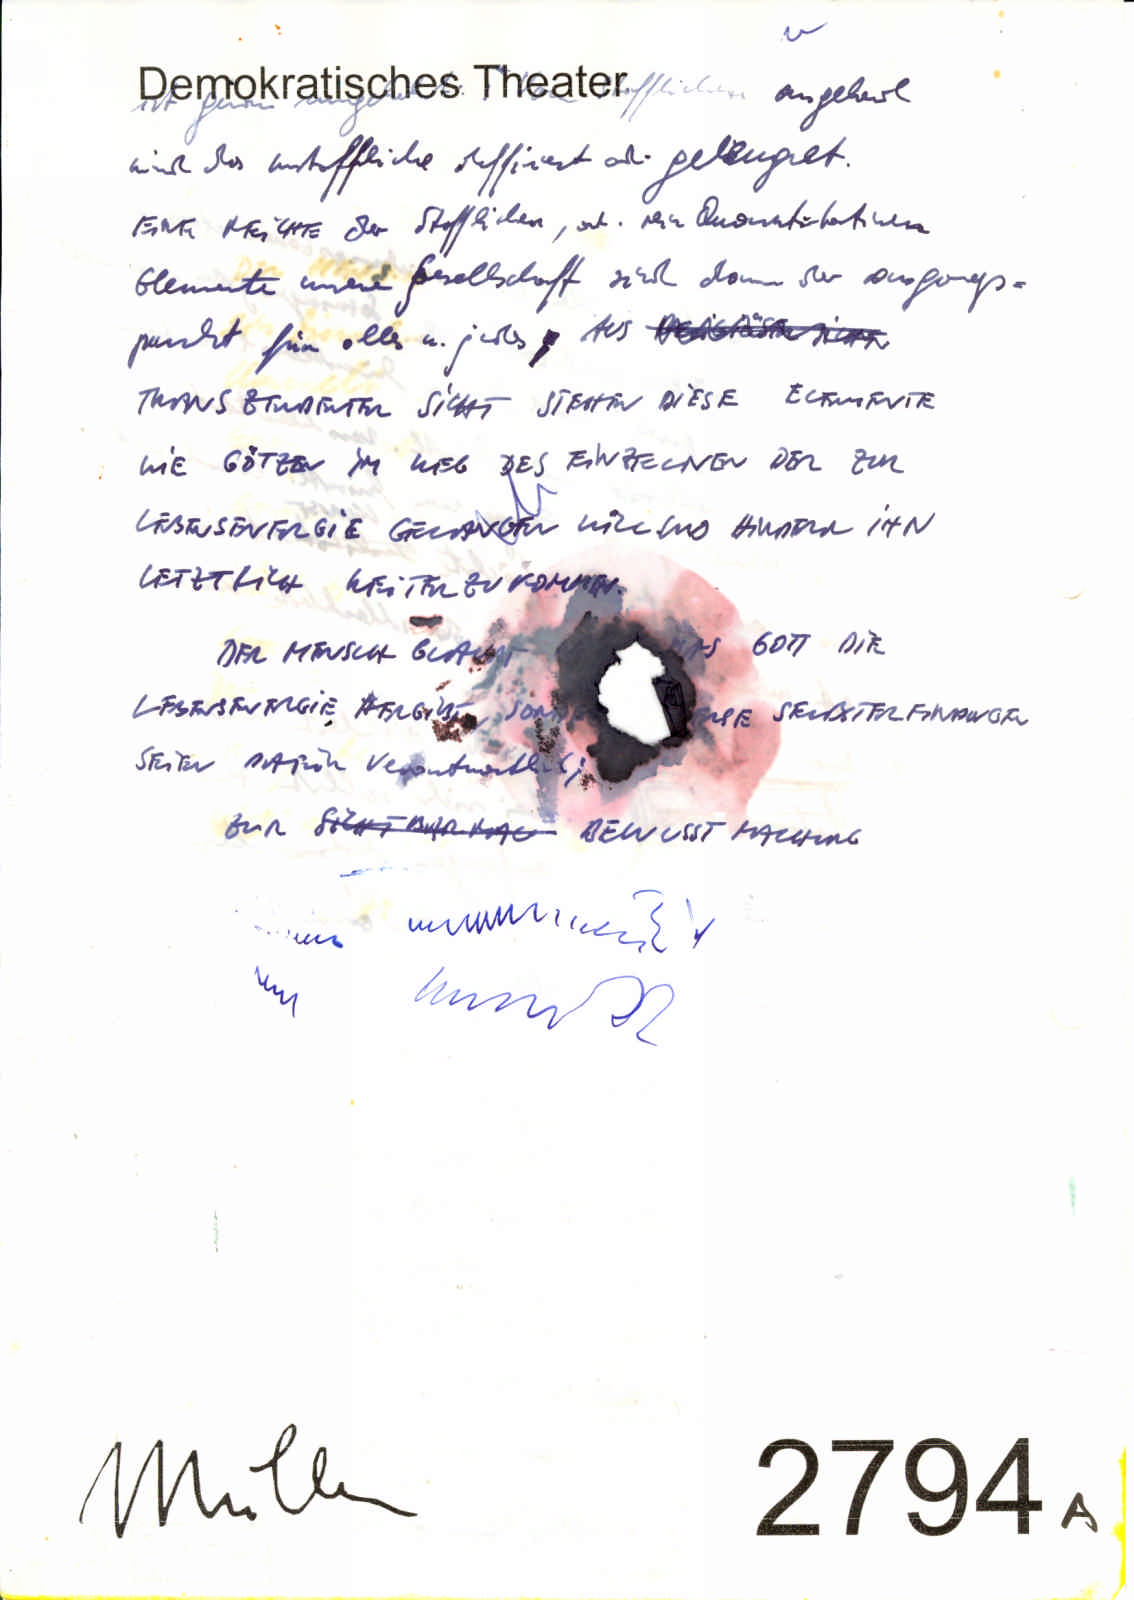 Demokratisches Theater
angeherd
wird das unstoffliche stoffisiert od. geleugnet.
der Stofflichen, od. rein Quantitativen
Elemente unserer Gesellschaft sind dann der ausgangs-
punkt für alles u. jedes, AUS
TRANSZENDENTER SICHT STEHEN DIESE ELEMENTE
WIE GÖTZEN IM WEG DES EINZELNEN DER ZUR
LEBENSENERGIE GELANGEN WILL UND HINDERN IHN
LETZTLICH WEITERZUKOMMEN.
DER MENSCH GLAUBT GOTT DIE
LEBENSENERGIE HERGIBT, SELBSTERFAHRUNGEN
SEIEN DAFÜR Verantwortlich;
ZUR BEWUSSTMACHUNG
Müller
2794 A